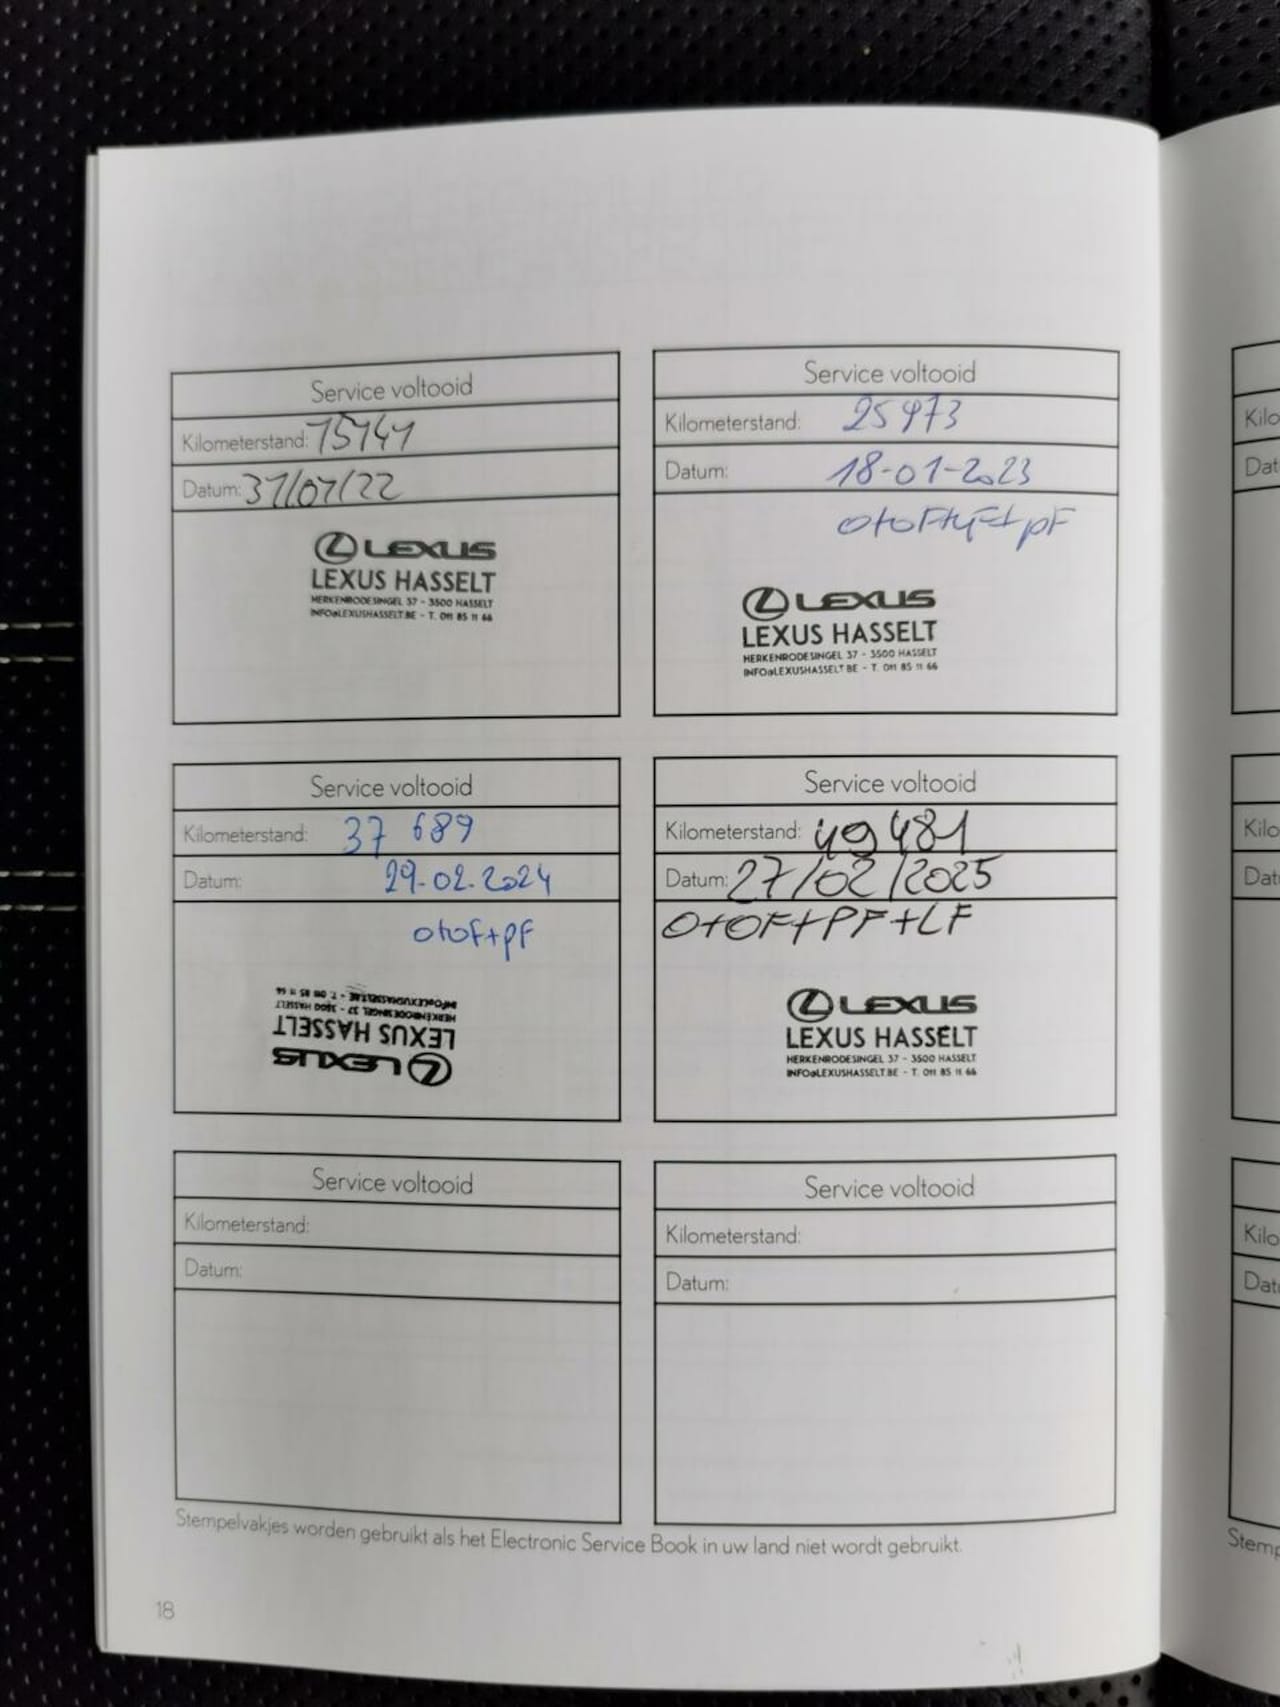 Service voltooid
Kilometerstand: 15141
Datum: 31/01/22
LEXUS
LEXUS HASSELT
HERKENRODESINGEL 37 - 3500 HASSELT
INFO@LEXUSHASSELT.BE - T. 011 85 11 66
Service voltooid
Kilometerstand: 25973
Datum: 18-01-2023
LEXUS
LEXUS HASSELT
HERKENRODESINGEL 37 - 3500 HASSELT
INFO@LEXUSHASSELT.BE - T. 011 85 11 66
Service voltooid
Kilometerstand: 37 689
Datum: 29.02.2024
O+OF+PF
LEXUS
LEXUS HASSELT
HERKENRODESINGEL 37 - 3500 HASSELT
INFO@LEXUSHASSELT.BE - T. 011 85 11 66
Service voltooid
Kilometerstand: 49481
Datum: 27/02/2025
O+OF+PF+LF
LEXUS
LEXUS HASSELT
HERKENRODESINGEL 37 - 3500 HASSELT
INFO@LEXUSHASSELT.BE - T. 011 85 11 66
Service voltooid
Kilometerstand:
Datum:
Service voltooid
Kilometerstand:
Datum:
Stempelvakjes worden gebruikt als het Electronic Service Book in uw land niet wordt gebruikt.
18
Kilo
Dat
Kilo
Dat
Kilo
Dat
Stemp